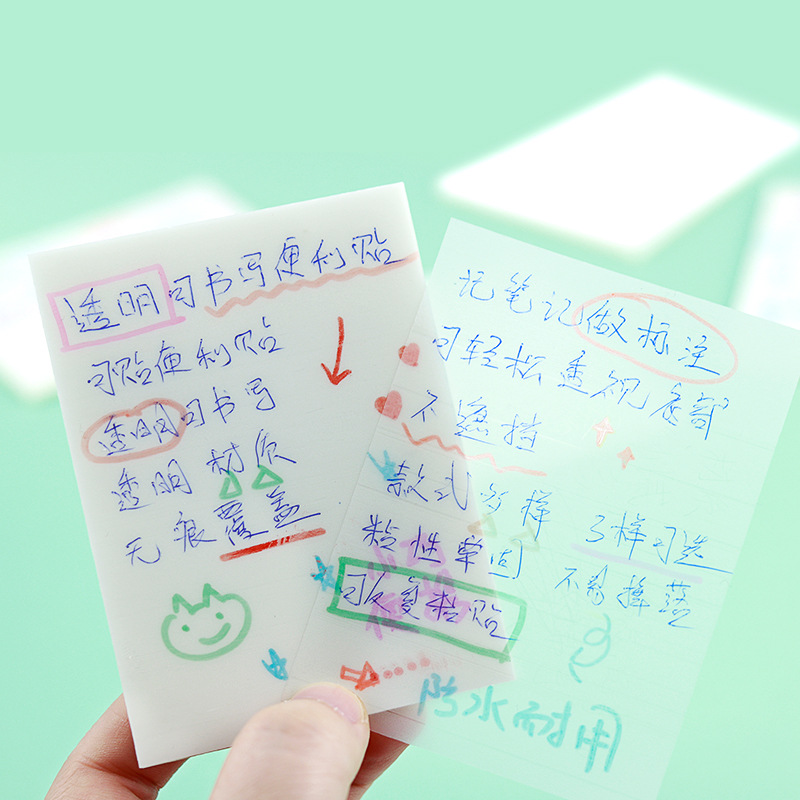 透明可书写便利贴
可贴便利贴
透明可书写
透明 材质
无痕覆盖
记笔记做标注
可轻松透视底部
不遮挡
款式多样 多样可选
粘性牢固 不易掉落
可反复粘贴
防水耐用